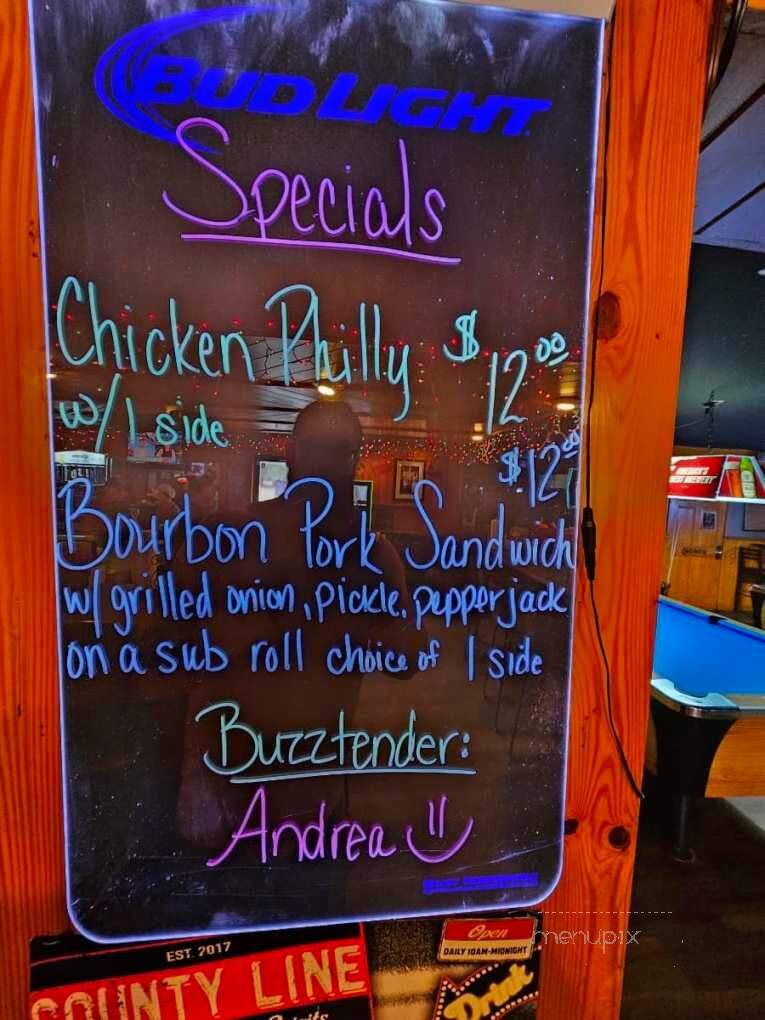 BUD LIGHT
Specials
Chicken Philly $12.00
w/ 1 side
$12.00
Bourbon Pork Sandwich
w/ grilled onion, pickle, pepperjack
on a sub roll choice of 1 side
Buzztender:
Andrea
EST. 2017
COUNTY LINE
Spirits
Open
DAILY 10AM-MIDNIGHT
Drink
menupix